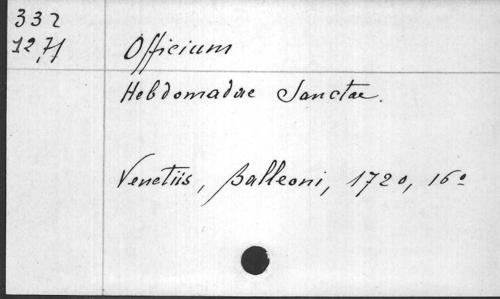 332
12,71
Officium
Hebdomadae Sanctae.
Venetiis, Balleoni, 1720, 16º